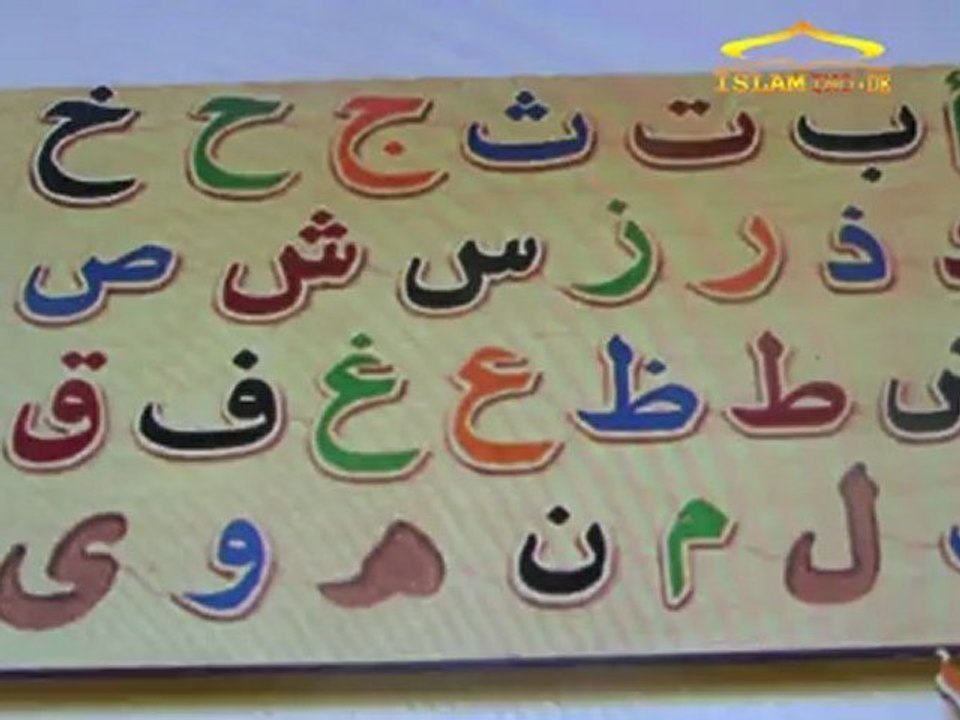 ISLAM
أ ب ت ث ج ح خ
ذ ر ز س ش ص
ض ط ظ ع غ ف ق
ل م ن ه و ى